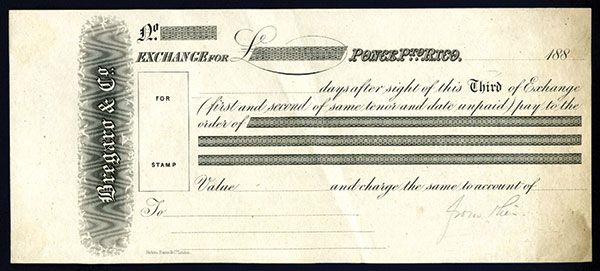 Bregaro & Co.
No.
EXCHANGE FOR £ PONCE, PTO. RICO. 188
FOR
STAMP
days after sight of this Third of Exchange
(first and second of same tenor and date unpaid) pay to the
order of
Value and charge the same to account of
To
from their